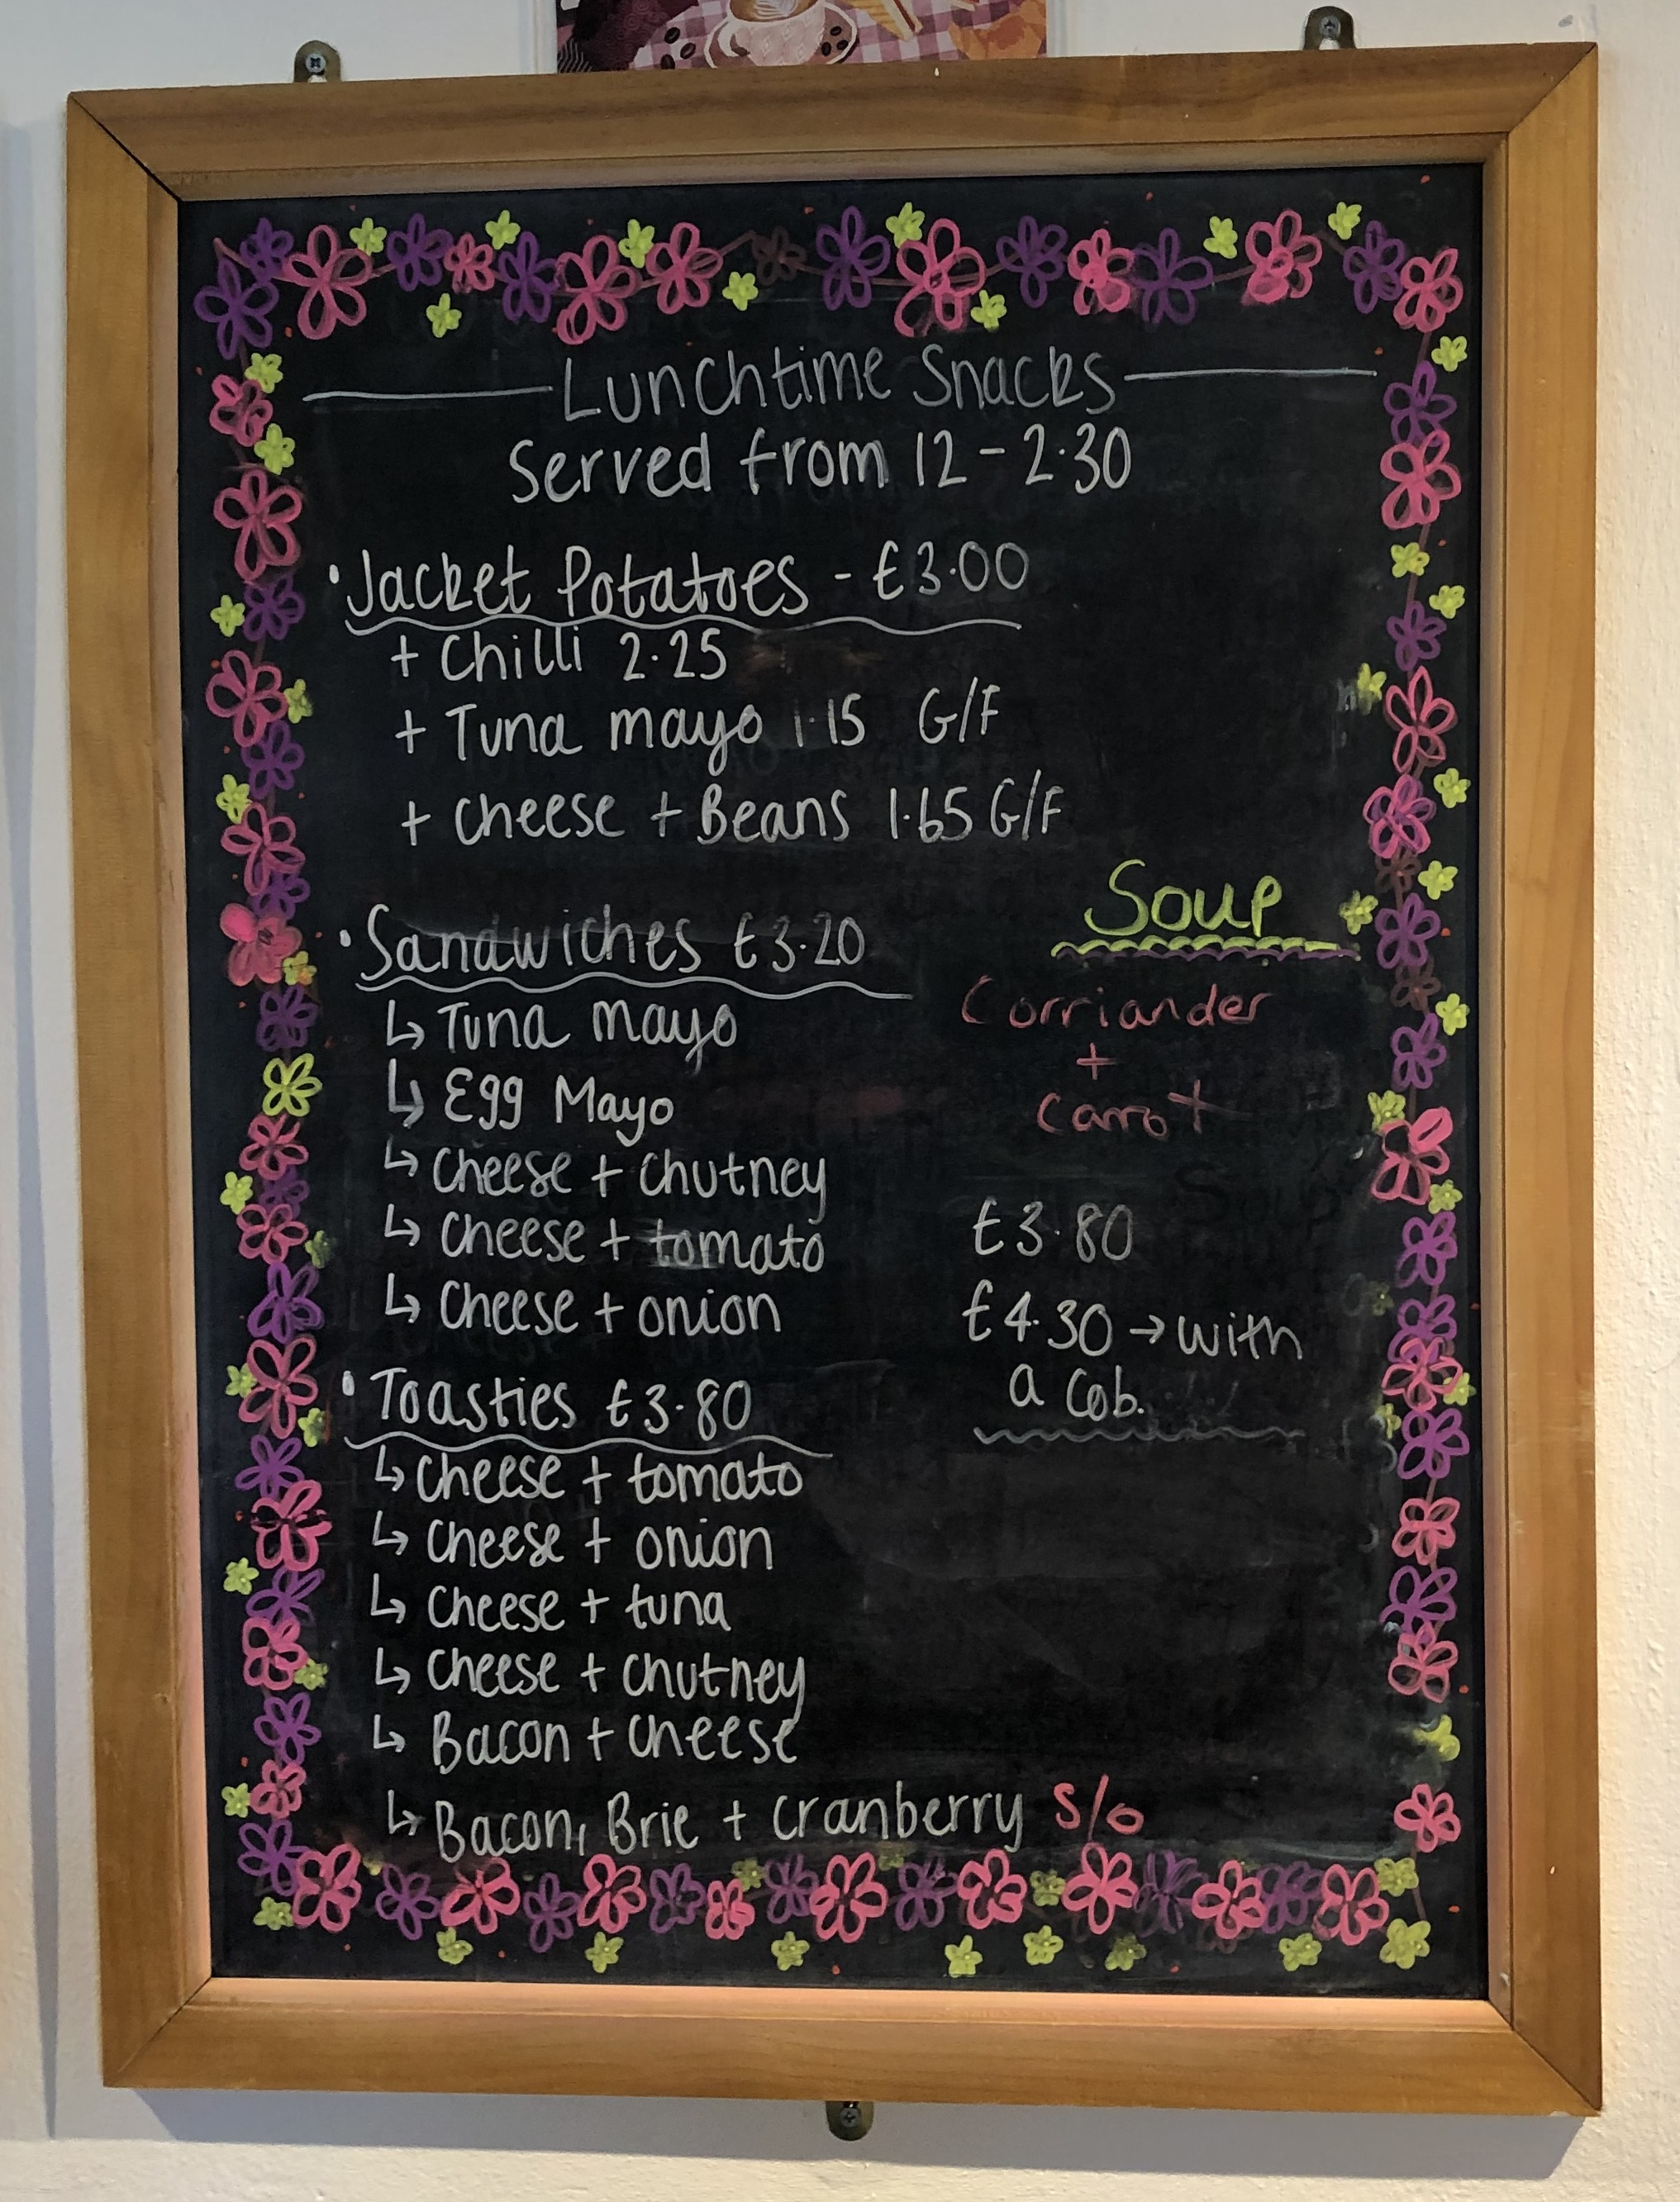 Lunchtime Snacks
Served from 12 - 2.30
• Jacket Potatoes - £3.00
+ Chilli 2.25
+ Tuna mayo 1.15 G/F
+ Cheese + Beans 1.65 G/F
• Sandwiches £3.20
↳ Tuna mayo
↳ Egg Mayo
↳ Cheese + Chutney
↳ Cheese + tomato
↳ Cheese + onion
• Toasties £3.80
↳ Cheese + tomato
↳ Cheese + onion
↳ Cheese + tuna
↳ Cheese + chutney
↳ Bacon + Cheese
↳ Bacon, Brie + cranberry S/o
Soup
Corriander
+
Carrot
Soup
£3.80
£4.30 → with
a Cob.